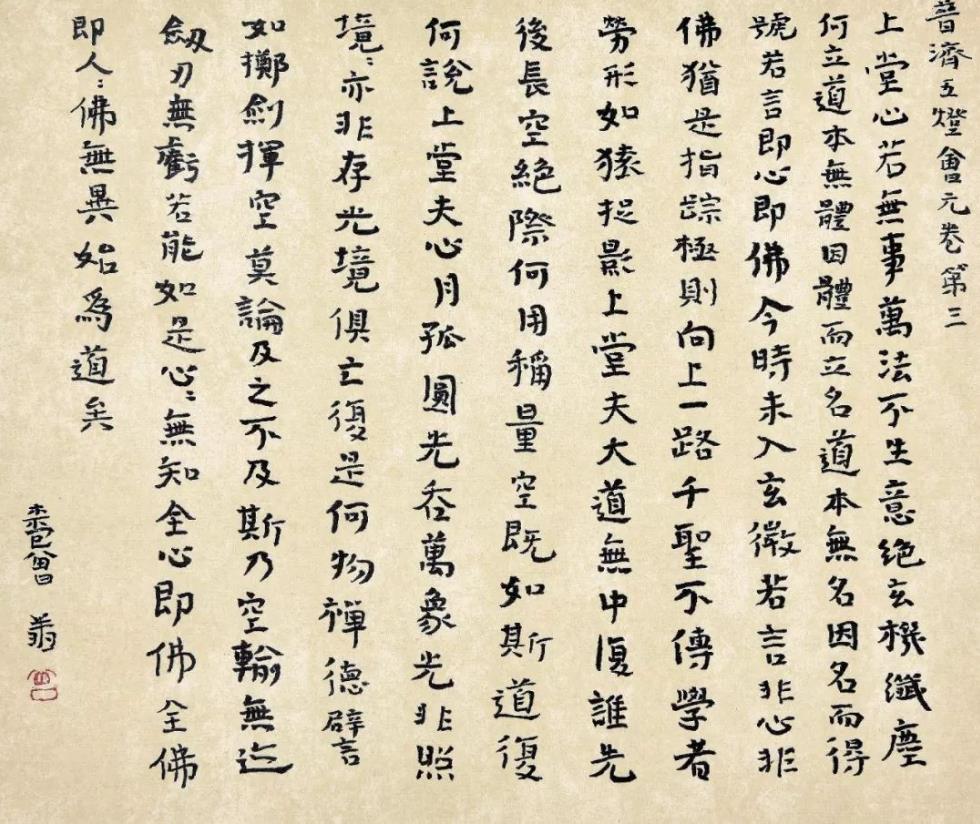 普濟五燈會元卷第三
上堂心若無事萬法不生意絕玄機纖塵
何立道本無體因體而立名道本無名因名而得
號若言即心即佛今時未入玄微若言非心非
佛猶是指蹤極則向上一路千聖不傳學者
勞形如猿捉影上堂夫大道無中復誰先
後長空絕際何用稱量空既如斯道復
何說上堂夫心月孤圓光吞萬象光非照
境〻亦非存光境俱亡復是何物禪德譬
如擲劍揮空莫論及之不及斯乃空輪無迹
劔刃無虧若能如是心〻無知全心即佛全佛
即人〻佛無異始爲道矣
曾翁